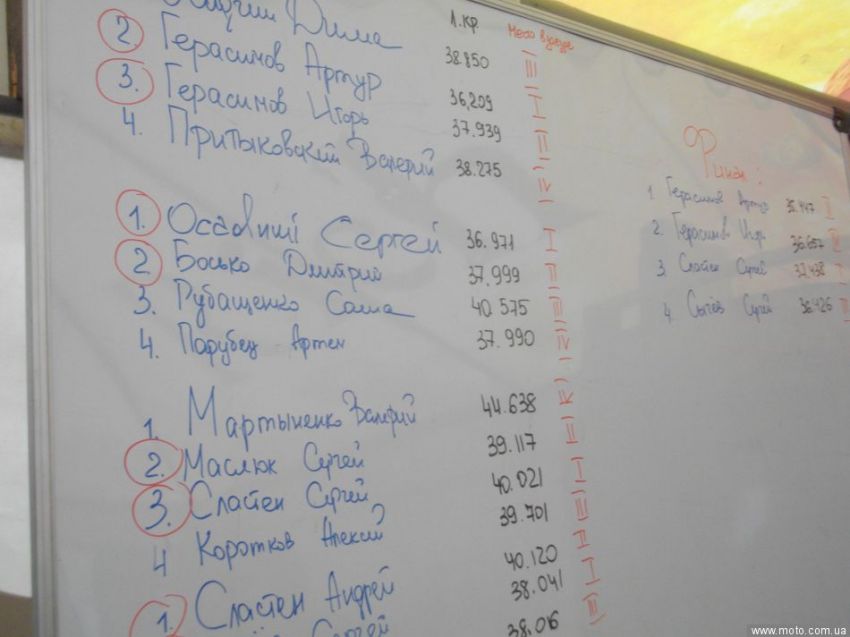 Дима
Л.КР
Место в заезде
2. Герасимов Артур 38.850 III
3. Герасимов Игорь 36,209 I
4. Притыковский Валерий 37.939 II
38.275 IV
1. Осадчий Сергей 36.971 I
2. Босько Дмитрий 37.999 II
3. Рубащенко Саша 40.575 III
4. Парубец Артем 37.990 IV
1. Мартыненко Валерий 44.638 IV
2. Маслюк Сергей 39.117 II
3. Сластен Сергей 40.021 I
4 Коротков Алексей 39.701 III
40.120 II
1. Сластен Андрей 38.041 I
Сергей 38.06 III
Финал:
1. Герасимов Артур 35.447
2. Герасимов Игорь 36.657
3. Сластен Сергей 37.438 I
4. Сычёв Сергей 36.426
www.moto.com.ua